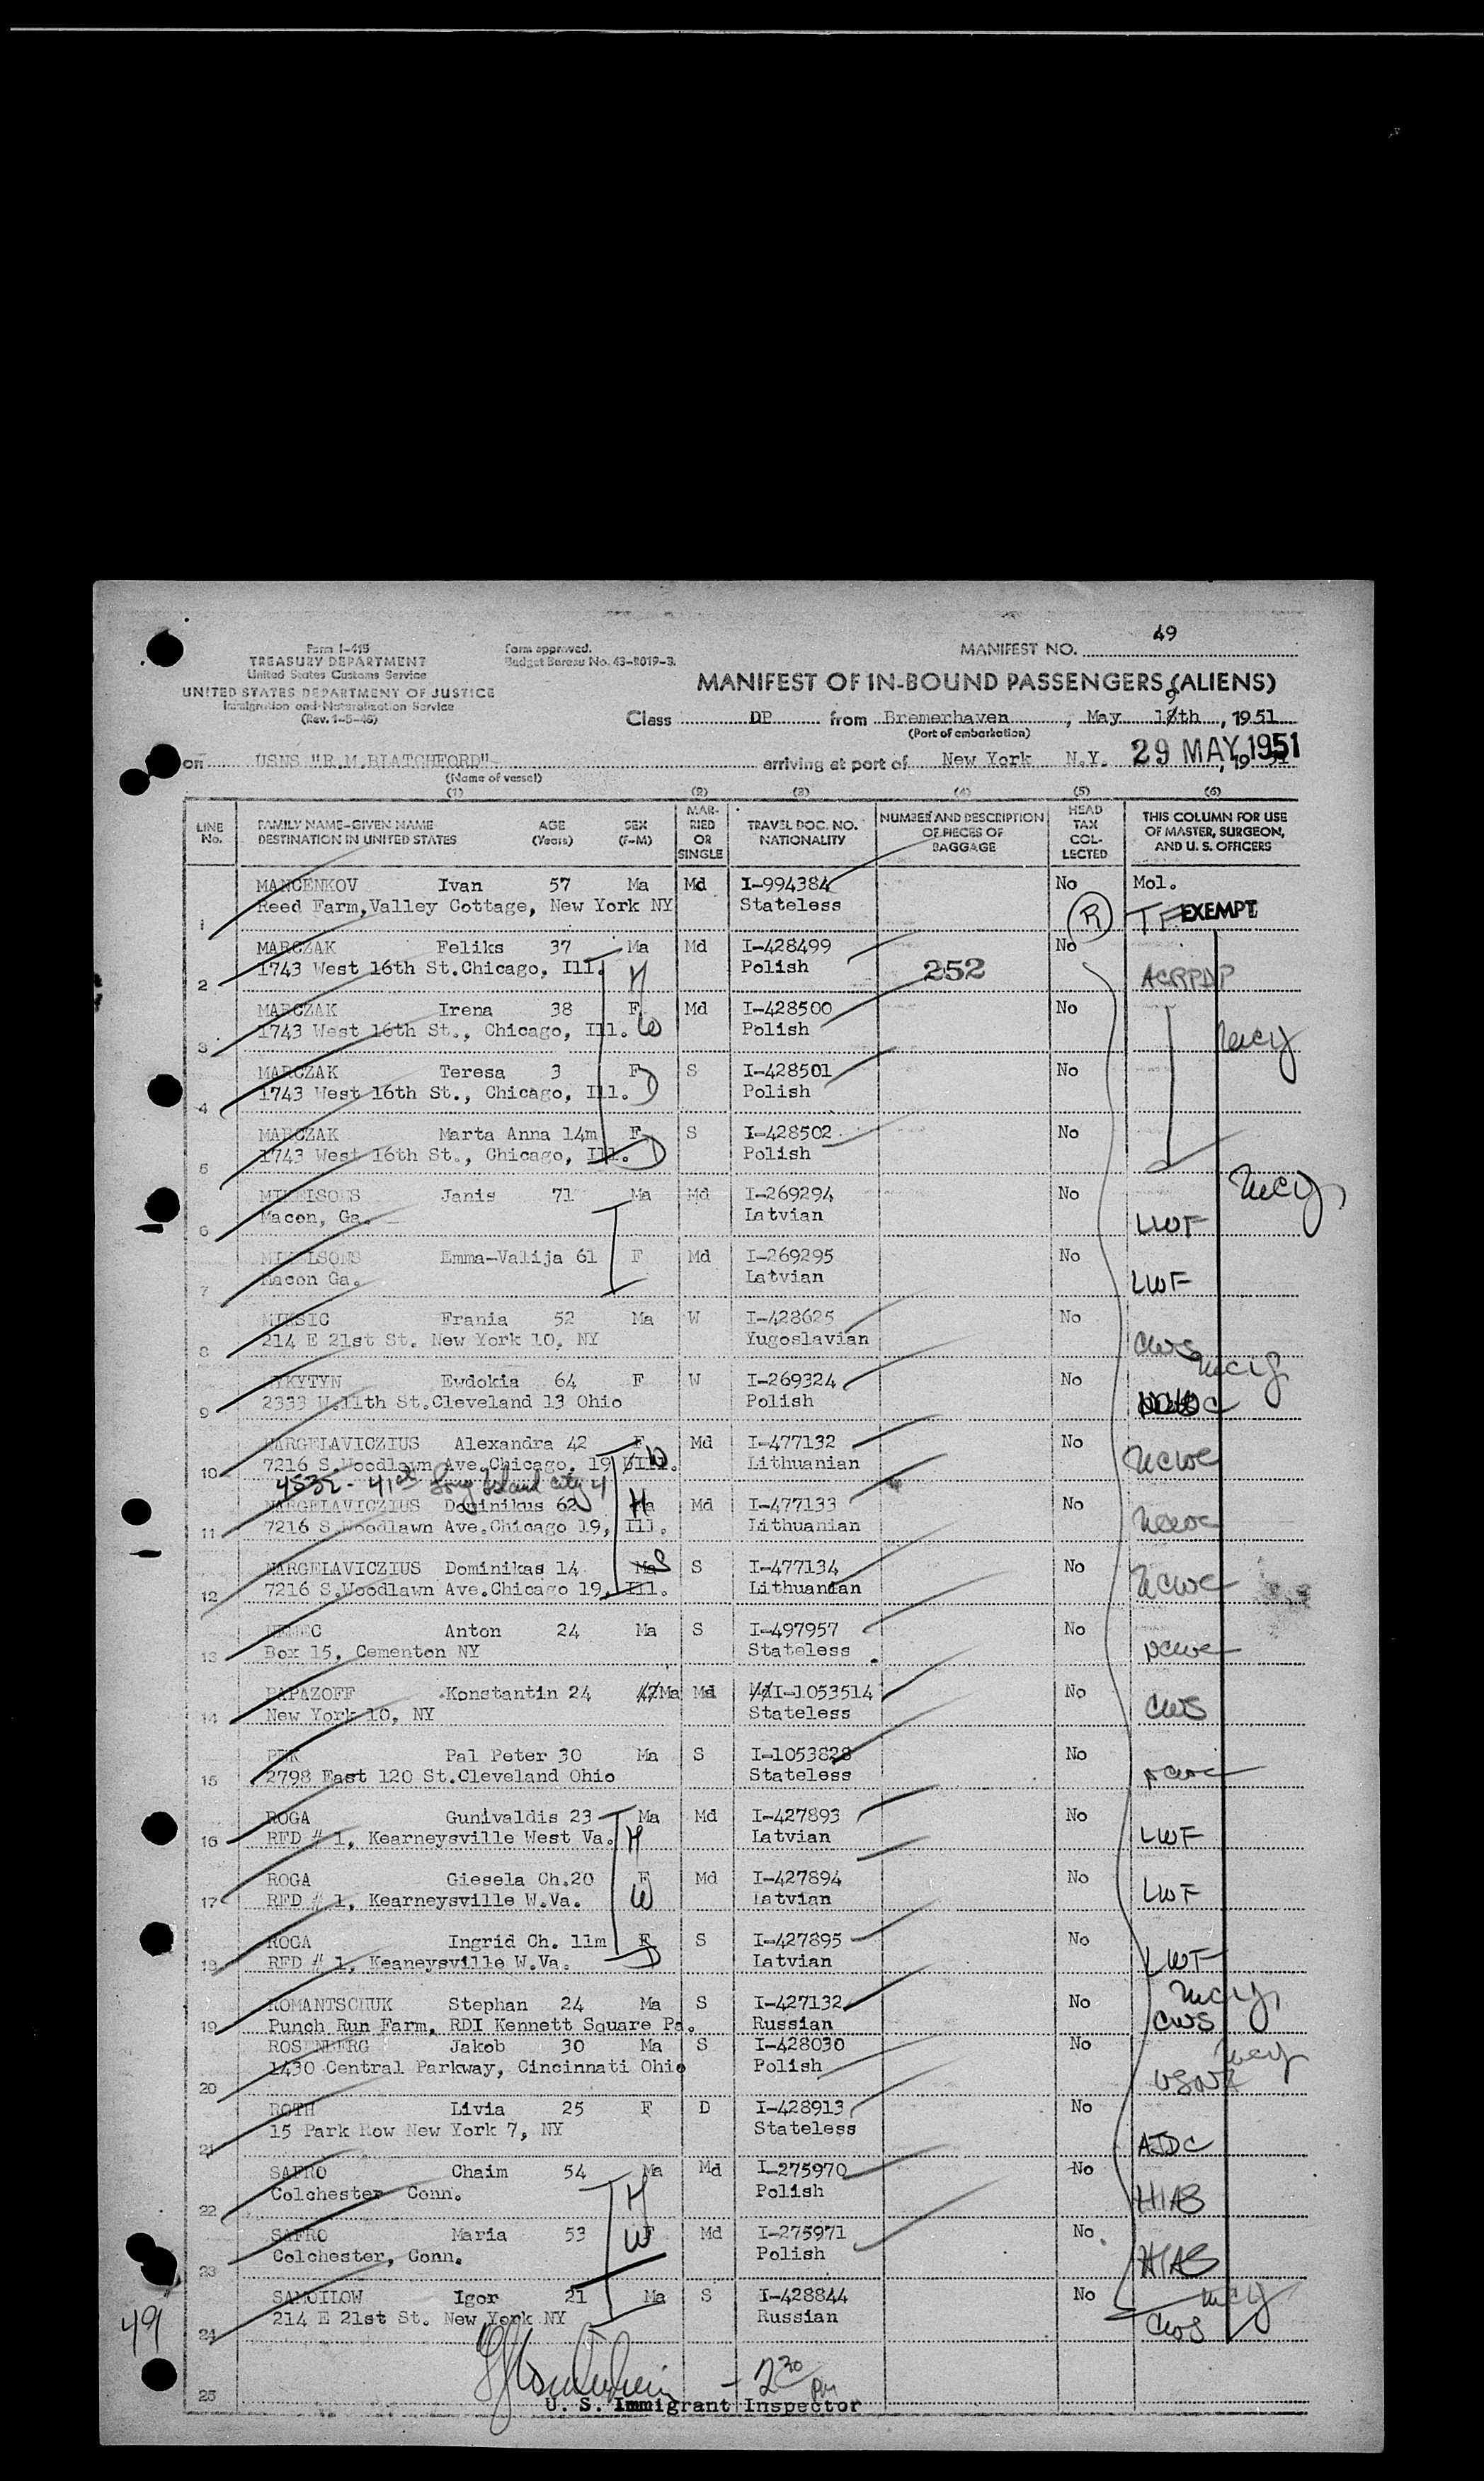 Form I-415
TREASURY DEPARTMENT
United States Customs Service
UNITED STATES DEPARTMENT OF JUSTICE
Immigration and Naturalization Service
(Rev. 1-5-46)
Form approved.
Budget Bureau No. 43-R019-3.
MANIFEST NO. 49
MANIFEST OF IN-BOUND PASSENGERS (ALIENS)
Class DP from Bremerhaven, May 19th, 1951
(Port of embarkation)
on USNS "R.M.BLATCHFORD" arriving at port of New York N.Y. 29 MAY 1951, 19 51
(Name of vessel)
(1) (2) (3) (4) (5) (6)
LINE No. FAMILY NAME-GIVEN NAME DESTINATION IN UNITED STATES AGE (Years) SEX (F-M) MARRIED OR SINGLE TRAVEL DOC. NO. NATIONALITY NUMBER AND DESCRIPTION OF PIECES OF BAGGAGE HEAD TAX COLLECTED THIS COLUMN FOR USE OF MASTER, SURGEON, AND U. S. OFFICERS
MANCENKOV Ivan 57 Ma Md I-994384 No Mol.
1 Reed Farm,Valley Cottage, New York NY Stateless R TF EXEMPT
MARCZAK Feliks 37 Ma Md I-428499 No
2 1743 West 16th St.Chicago, Ill. H Polish 252 ACRPDP
MARCZAK Irena 38 F Md I-428500 No
3 1743 West 16th St., Chicago, Ill. W Polish
MARCZAK Teresa 3 F S I-428501 No
4 1743 West 16th St., Chicago, Ill. D Polish
MARCZAK Marta Anna 14m F S I-428502 No
5 1743 West 16th St., Chicago, Ill. D Polish
MIKELSONS Janis 71 Ma Md I-269294 No
6 Macon, Ga. Latvian LWF
MIKELSONS Emma-Valija 61 F Md I-269295 No
7 Macon Ga. Latvian LWF
MIKSIC Frania 52 Ma W I-428625 No
8 214 E 21st St. New York 10, NY Yugoslavian CWS
MYKYTYN Ewdokia 64 F W I-269324 No
9 2333 W.11th St.Cleveland 13 Ohio Polish
NARGELAVICZIUS Alexandra 42 F Md I-477132 No
10 7216 S.Woodlawn Ave.Chicago, 19 Ill. W Lithuanian NCWC
4532 - 41st Long Island City 4
NARGELAVICZIUS Dominikus 62 Ma H Md I-477133 No
11 7216 S.Woodlawn Ave.Chicago 19, Ill. Lithuanian NCWC
NARGELAVICZIUS Dominikas 14 Ma S S I-477134 No
12 7216 S.Woodlawn Ave.Chicago 19, Ill. Lithuanian NCWC
NEMEC Anton 24 Ma S I-497957 No
13 Box 15, Cementon NY Stateless NCWC
PAPAZOFF Konstantin 24 Ma Md I-1053514 No
14 New York 10, NY Stateless CWS
PEK Pal Peter 30 Ma S I-1053828 No
15 2798 East 120 St.Cleveland Ohio Stateless NCWC
ROGA Gunivaldis 23 Ma Md I-427893 No
16 RFD # 1, Kearneysville West Va. H Latvian LWF
ROGA Giesela Ch.20 F Md I-427894 No
17 RFD # 1, Kearneysville W.Va. W Latvian LWF
ROGA Ingrid Ch. 11m F S I-427895 No
18 RFD # 1, Keaneysville W.Va. D Latvian LWF
ROMANTSCHUK Stephan 24 Ma S I-427132 No
19 Punch Run Farm, RDI Kennett Square Pa. Russian CWS
ROSENBERG Jakob 30 Ma S I-428030 No
20 1430 Central Parkway, Cincinnati Ohio Polish USNA
ROTH Livia 25 F D I-428913 No
21 15 Park Row New York 7, NY Stateless AJDC
SAFRO Chaim 54 Ma Md I-275970 No
22 Colchester Conn. H Polish HIAS
SAFRO Maria 53 F Md I-275971 No
23 Colchester, Conn. W Polish HIAS
SAMOILOW Igor 21 Ma S I-428844 No
24 214 E 21st St. New York NY Russian CWS
49
25 - 2 30 pm
U. S. Immigrant Inspector